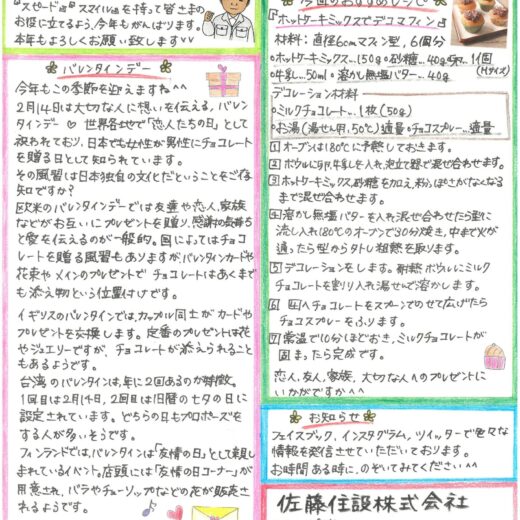 "スピード"&"スマイル"を持って皆さまの
お役に立てるよう、今年もがんばります。
本年もよろしくお願い致します♡♡
バレンタインデー
今年もこの季節を迎えますね^^
2月14日は大切な人に想いを伝える、バレン
タインデー♡ 世界各地で「恋人たちの日」として
祝われており、日本でも女性が男性にチョコレート
を贈る日として知られています。
その風習は日本独自の文化だということをご存
知ですか?
欧米のバレンタインデーでは友達や恋人、家族
などがお互いにプレゼントを贈り、感謝の気持ち
と愛を伝えるのが一般的。国によってはチョコ
レートを贈る風習もありますが、バレンタインカードや
花束やメインのプレゼントで チョコレートはあくまで
も添え物という位置付けです。
イギリスのバレンタインでは、カップル同士が カードや
プレゼントを交換します。定番のプレゼントは花
やジュエリーですが、チョコレートが添えられること
もあるようです。
台湾のバレンタインは、年に2回あるのが特徴。
1回目は2月14日、2回目は旧暦の七夕の日に
設定されています。どちらの日もプロポーズを
する人が多いそうです。
フィンランドでは、バレンタインは「友情の日」として親し
まれているイベント。店頭には「友情の日コーナー」が
用意され、バラやチューリップなどの花が販売さ
れるようです。
今回のおすすめレシピ
『ホットケーキミックスでデコマフィン』
材料:直径6cmマフィン型、6個分
○ホットケーキミックス…150g ○砂糖…40g ○卵…1個
(Mサイズ)
○牛乳…50ml ○溶かし無塩バター…40g
デコレーション材料
○ミルクチョコレート…1枚(50g)
○お湯(湯せん用、50℃)適量 ○チョコスプレー…適量
1 オーブンは180℃に予熱しておきます。
2 ボウルに卵、牛乳を入れ、泡立て器で混ぜ合わせます。
3 ホットケーキミックス、砂糖を加え、粉っぽさがなくなる
まで混ぜ合わせます。
4 溶かし無塩バターを入れ混ぜ合わせたら型に
流し入れ180℃のオーブンで30分焼き、中まで火が
通ったら型から外し粗熱を取ります。
5 デコレーションをします。耐熱ボウルにミルク
チョコレートを割り入れ湯せんで溶かします。
6 4へチョコレートをスプーンでのせて広げたら
チョコスプレーをふります。
7 常温で10分ほどおき、ミルクチョコレートが
固まったら完成です。
恋人、友人、家族、大切な人へのプレゼントに
いかがですか^^
お知らせ
フェイスブック、インスタグラム、ツイッターで色々な
情報を発信させていただいております。
お時間ある時に、のぞいてみてください^^
佐藤住設株式会社